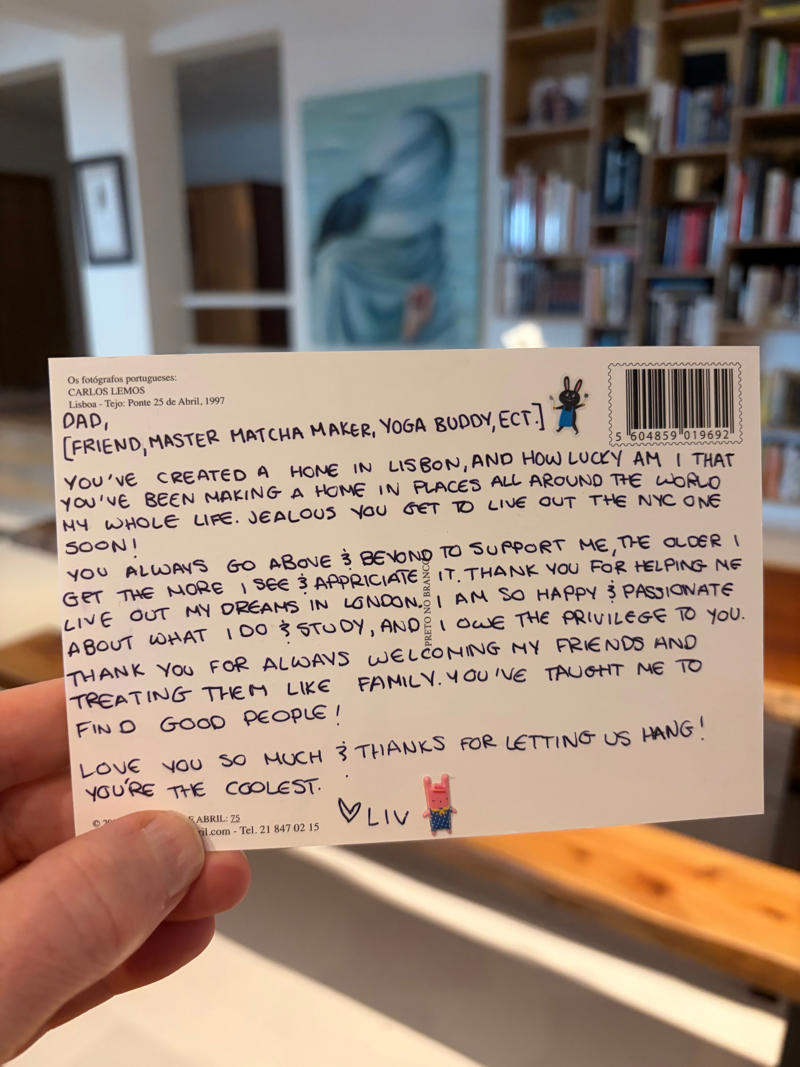 Os fotógrafos portugueses:
CARLOS LEMOS
Lisboa - Tejo: Ponte 25 de Abril, 1997
DAD,
[FRIEND, MASTER MATCHA MAKER, YOGA BUDDY, ECT.]
5 604859 019692
YOU'VE CREATED A HOME IN LISBON, AND HOW LUCKY AM I THAT
YOU'VE BEEN MAKING A HOME IN PLACES ALL AROUND THE WORLD
MY WHOLE LIFE. JEALOUS YOU GET TO LIVE OUT THE NYC ONE
SOON!
YOU ALWAYS GO ABOVE & BEYOND TO SUPPORT ME, THE OLDER I
GET THE MORE I SEE & APPRICIATE IT. THANK YOU FOR HELPING ME
LIVE OUT MY DREAMS IN LONDON. I AM SO HAPPY & PASSIONATE
ABOUT WHAT I DO & STUDY, AND I OWE THE PRIVILEGE TO YOU.
PRETO NO BRANCO
THANK YOU FOR ALWAYS WELCOMING MY FRIENDS AND
TREATING THEM LIKE FAMILY. YOU'VE TAUGHT ME TO
FIND GOOD PEOPLE!
LOVE YOU SO MUCH & THANKS FOR LETTING US HANG!
YOU'RE THE COOLEST.
♡ LIV
ABRIL: 75
.com - Tel. 21 847 02 15